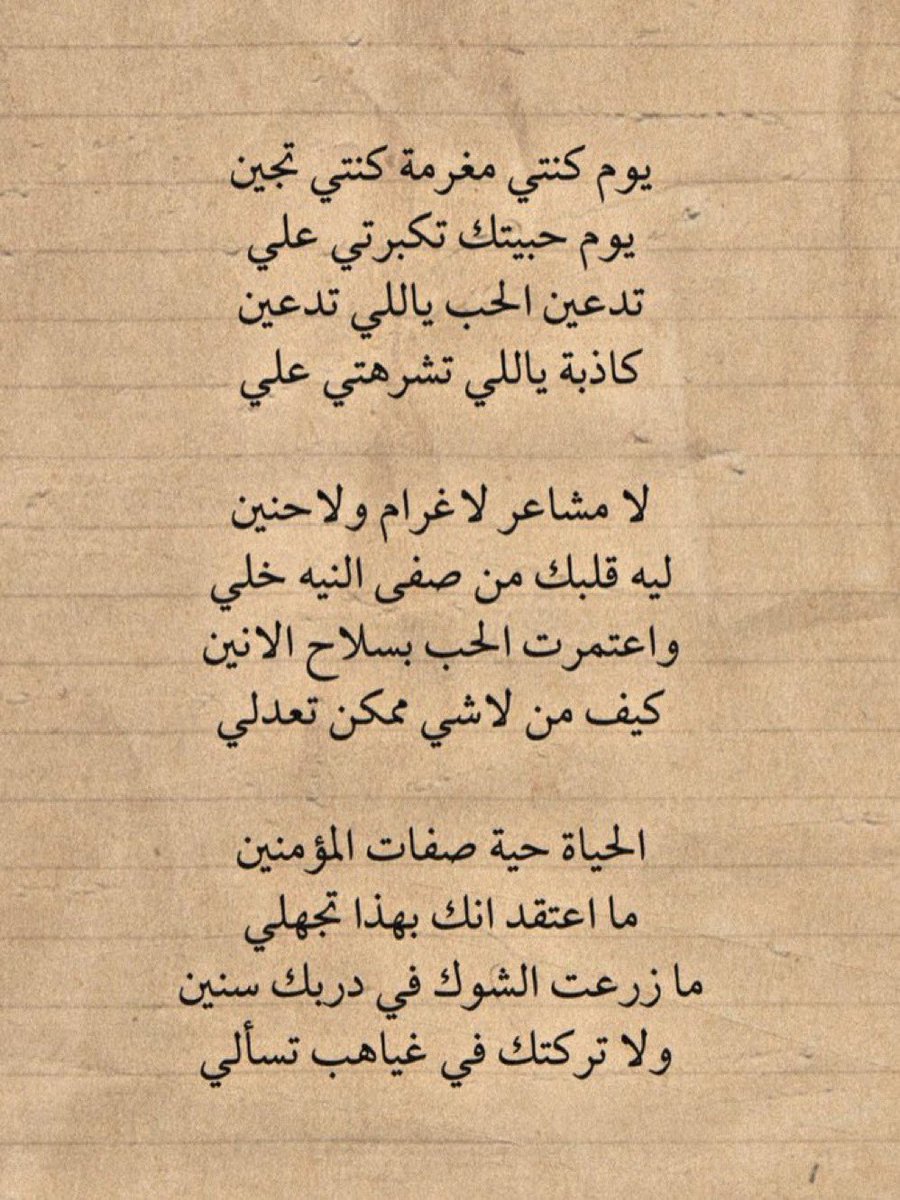 يوم كنتي مغرمة كنتي تجين
يوم حبيتك تكبرتي علي
تدعين الحب ياللي تدعين
كاذبة ياللي تشرهتي علي
لا مشاعر لاغرام ولاحنين
ليه قلبك من صفى النيه خلي
واعتمرت الحب بسلاح الانين
كيف من لاشي ممكن تعدلي
الحياة حية صفات المؤمنين
ما اعتقد انك بهذا تجهلي
ما زرعت الشوك في دربك سنين
ولا تركتك في غياهب تسألي